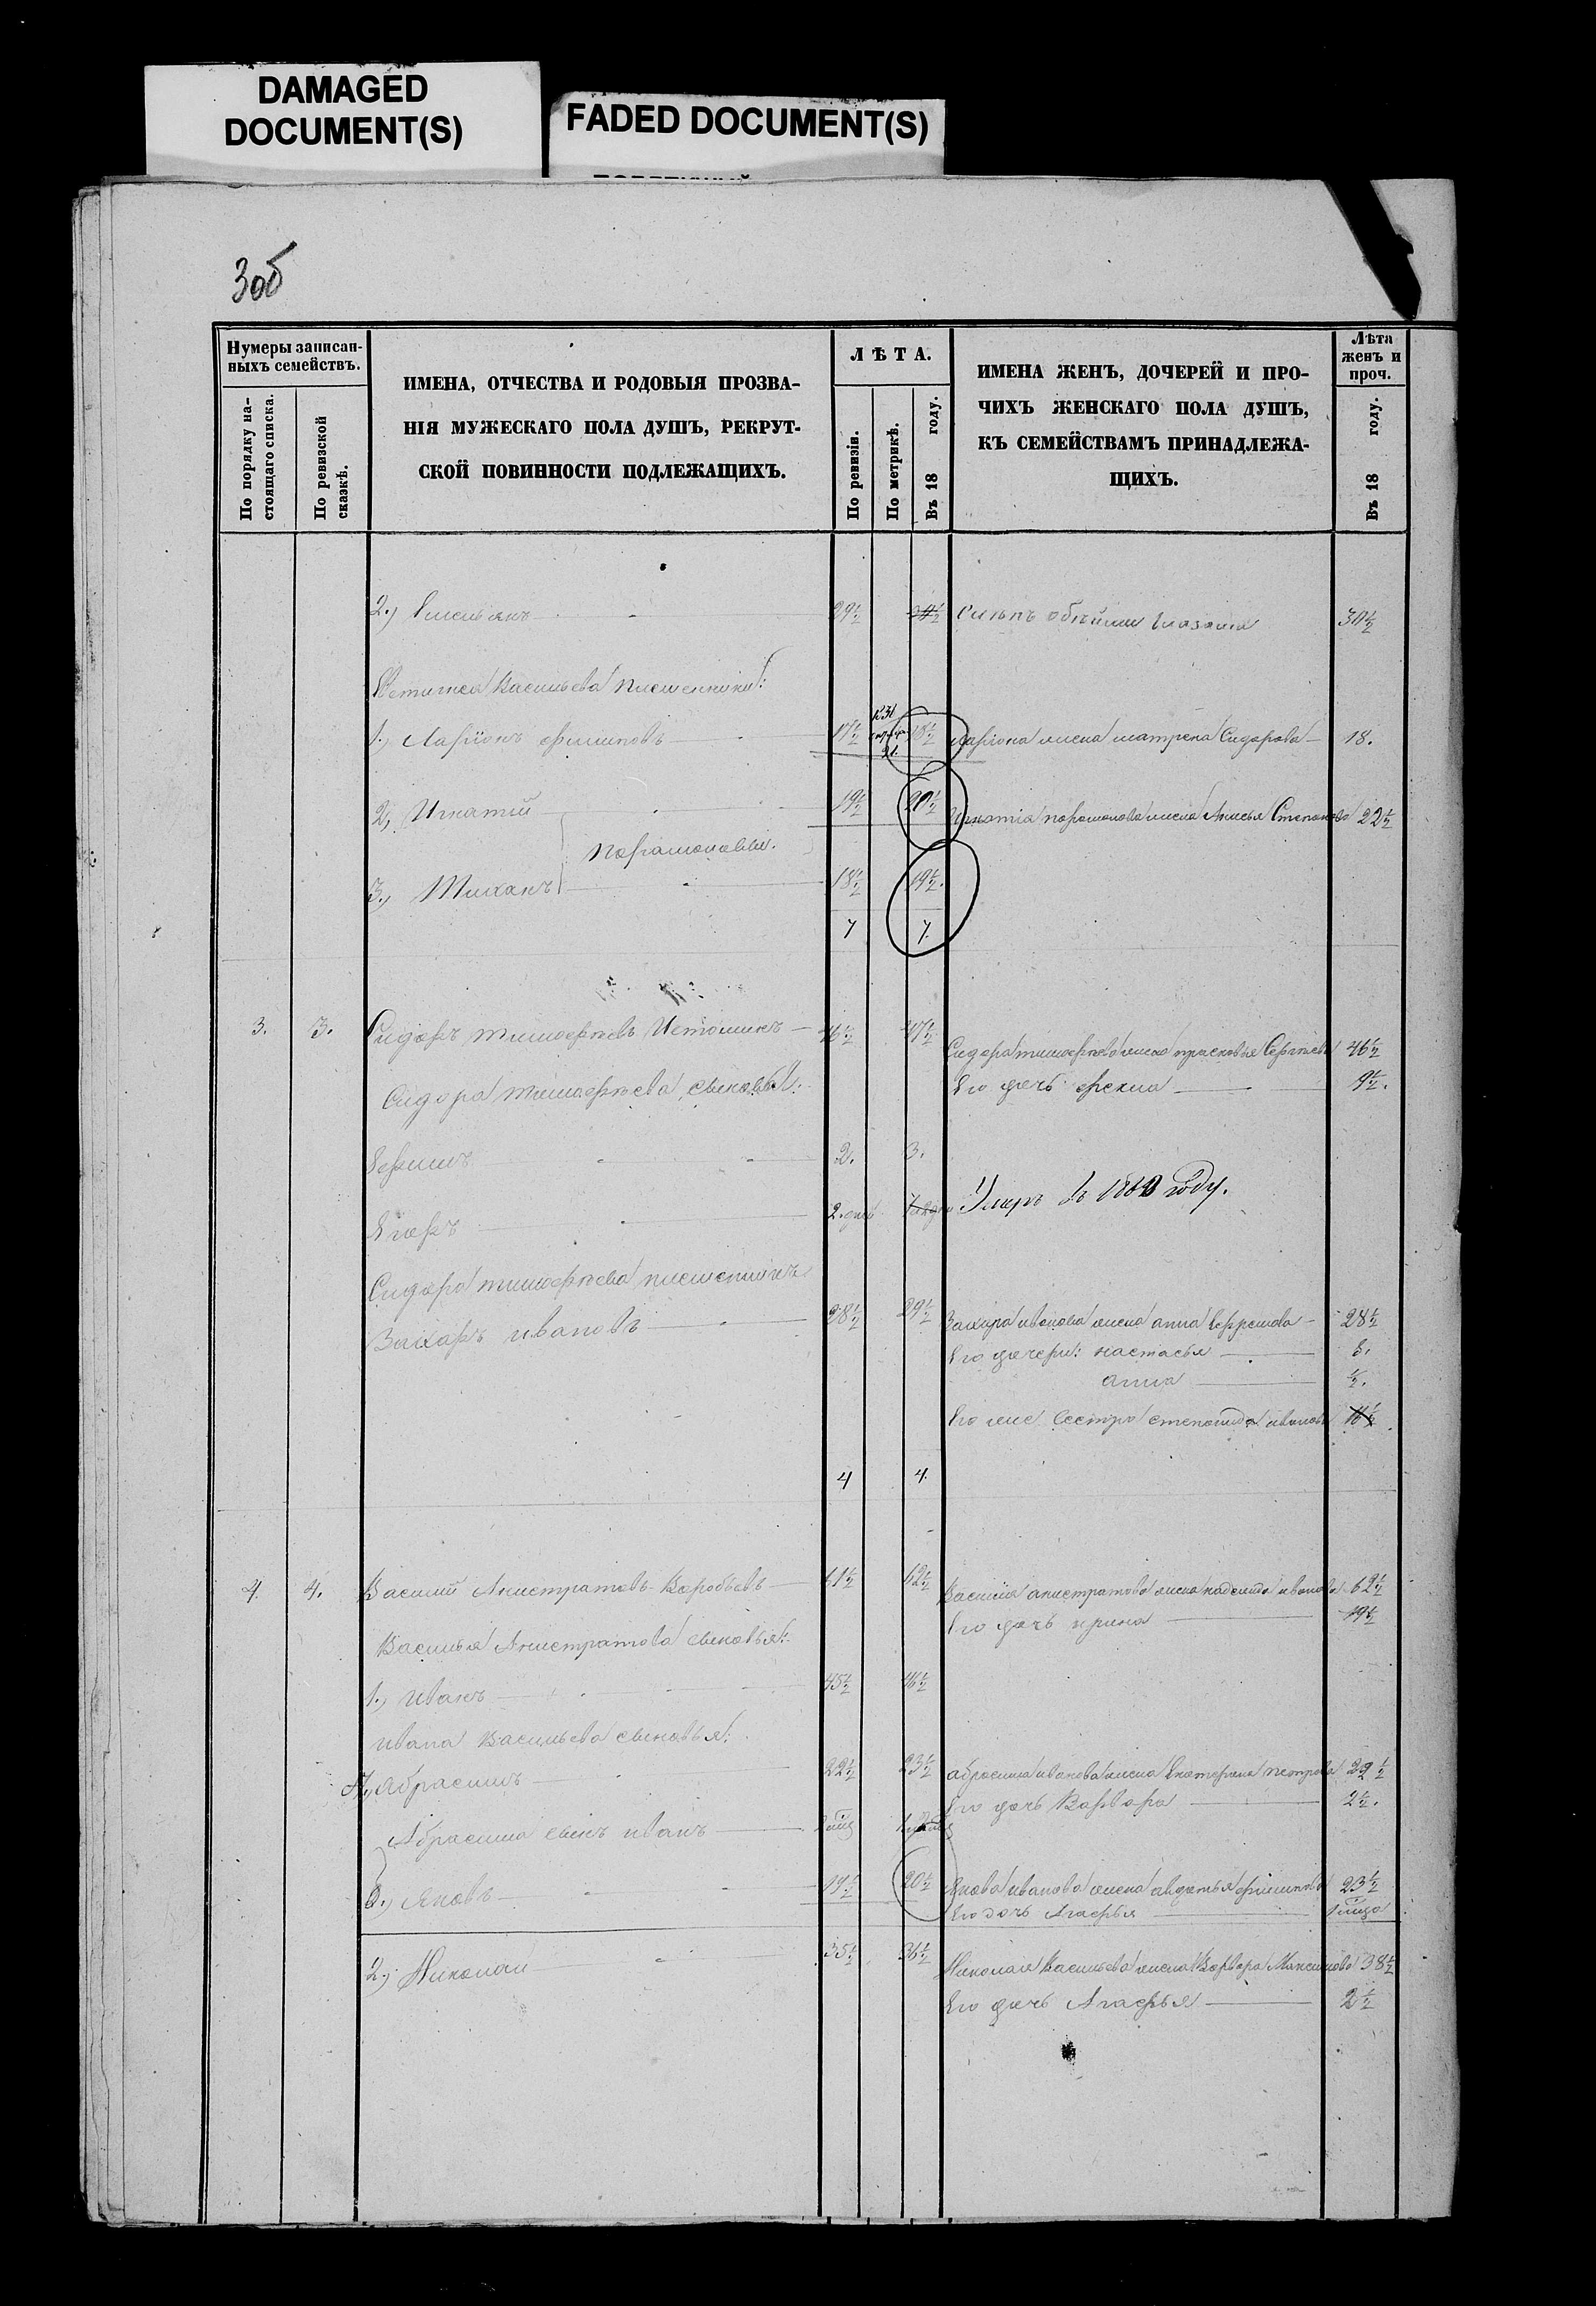 DAMAGED
DOCUMENT(S)
FADED DOCUMENT(S)
3об
Нумеры записан-
ныхъ семействъ.
По порядку на-
стоящаго списка.
По ревизской
сказкѣ.
ИМЕНА, ОТЧЕСТВА И РОДОВЫЯ ПРОЗВА-
НІЯ МУЖЕСКАГО ПОЛА ДУШЪ, РЕКРУТ-
СКОЙ ПОВИННОСТИ ПОДЛЕЖАЩИХЪ.
ЛѢТА.
По ревизіи.
По метрикѣ.
Въ 18 году.
ИМЕНА ЖЕНЪ, ДОЧЕРЕЙ И ПРО-
ЧИХЪ ЖЕНСКАГО ПОЛА ДУШЪ,
КЪ СЕМЕЙСТВАМЪ ПРИНАДЛЕЖА-
ЩИХЪ.
Лѣта
женъ и
проч.
Въ 18 году.
2.) Емельянъ 29½ 30½
Васильева племянники:
1.) Ларіонъ филиповъ 17½ 18½ Ларіона жена матрена Сидорова 18.
2, Игнатій 19½ 20½ Игнатія парамонова жена Анисья Степанова 22½
Парамоновы.
3.) Тиханъ 18½ 19½.
7 7.
3. 3. Сидоръ тимофѣевъ Истоминъ 46½ 47½ Сидора тимофѣева жена прасковья Сергѣева 46½
Его дочь фекла 9½.
Сидора тимофѣева сыновья:
Ефимъ 2. 3.
Егоръ 2. дней Умеръ въ году.
Сидора тимофѣева племянникъ
Захаръ ивановъ 28½ 29½ Захара иванова жена анна Ефремова 28½
Его дочери: настасья
анна ½.
Его же сестра степанида иванова 16½
4 4.
4. 4. Василій Анистратовъ Воробьевъ 61½ 62½ Василія анистратова жена надежда иванова 62½
Его дочь ирина 19½
Василья Анистратова сыновья:
1.) иванъ 45½ 46½
ивана Васильева сыновья:
А.) абрасимъ 22½ 23½ абросима иванова жена Екатерина петрова 22½
Его дочь Варвара 2½.
Абрасима сынъ иванъ
Б.) яковъ 19½ 20½ Якова иванова жена авдотья филипова 23½
Его дочь Агафья
2.) Николай 35½ 36½ Николая Васильева жена Варвара Максимова 38½
Его дочь Агафья 2½